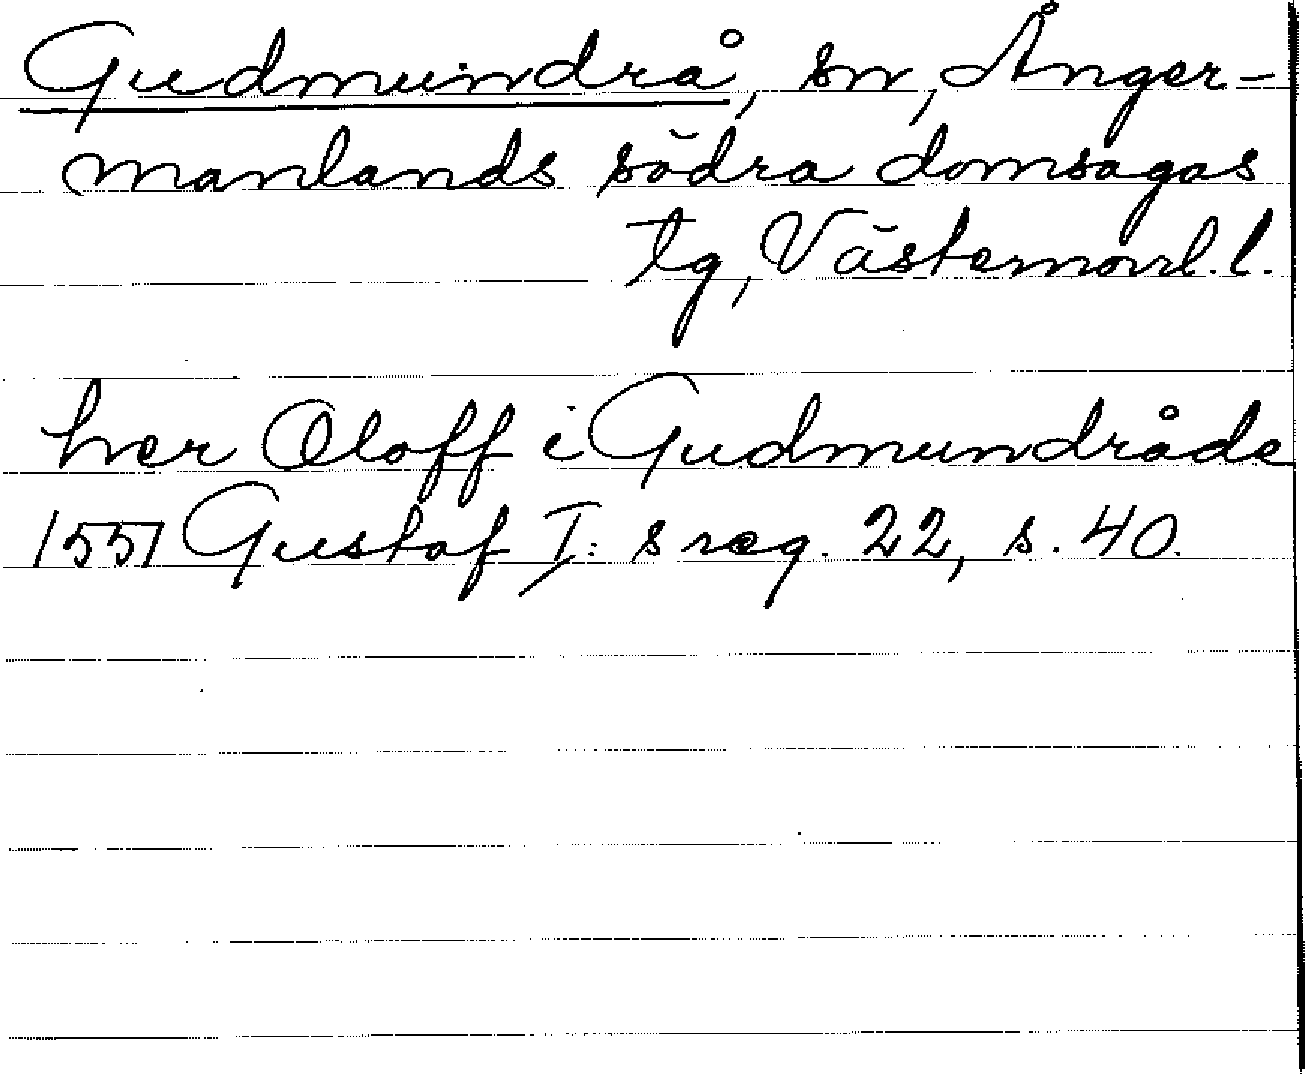 Gudmundrå, sn, Ånger-
manlands södra domsagas
tg, Västernorrl. l.
her Oloff i Gudmundråde
1551 Gustaf I:s reg. 22, s. 40.